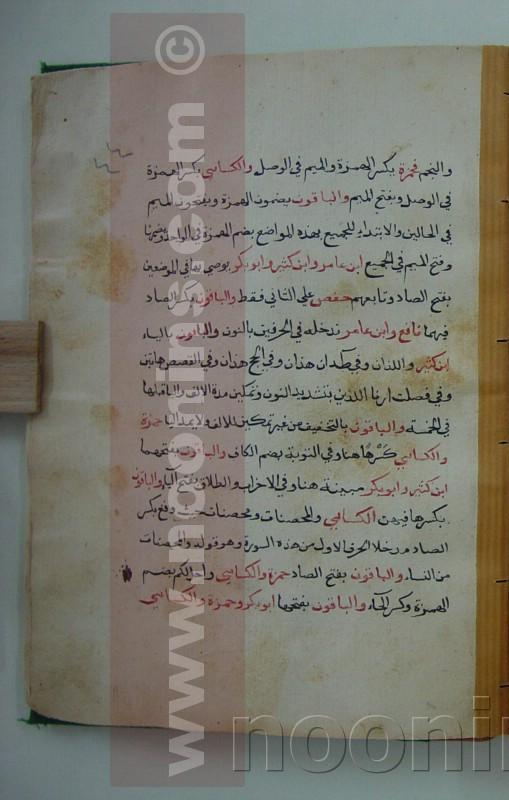 والنجم فحمزة بكسر الهمزة والميم في الوصل والكسائي بكسر الهمزة
في الوصل وبفتح الميم والباقون بضمون الهمزة ويفتحون الميم
في الحالين والابتداء للجميع بهذه المواضع بضم الهمزة في الواحد وبضمها
وفتح الميم في الجميع ابن عامر وابن كثير وابو بكر يوصي بها في الموضعين
بفتح الصاد وتابعهم حفص على الثاني فقط والباقون بكسر الصاد
فيهما نافع وابن عامر ندخله في الحرفين بالنون والباقون بالياء
ابن كثير واللذان وفي طه ان هذان وفي الحج هذان وفي القصص هاتين
وفي فصلت ارنا اللذين بتشديد النون وتمكين مدة الالف والياء قبلها
في الخمسة والباقون بالتخفيف من غير تمكين للالف ولا مد الياء حمزة
والكسائي كرها هنا وفي التوبة بضم الكاف والباقون بفتحهما
ابن كثير وابو بكر مبينة هنا وفي الاحزاب والطلاق بفتح الياء والباقون
بكسرها فيهن الكسائي والمحصنات ومحصنات حيث وقع بكسر
الصاد ما خلا الحرف الاول من هذه السورة وهو قوله والمحصنات
من النساء والباقون بفتح الصاد حمزة والكسائي واحل لكم بضم
الهمزة وكسر الحاء والباقون بفتحهما ابو بكر وحمزة والكسائي
www.noonins.com ©
noonin